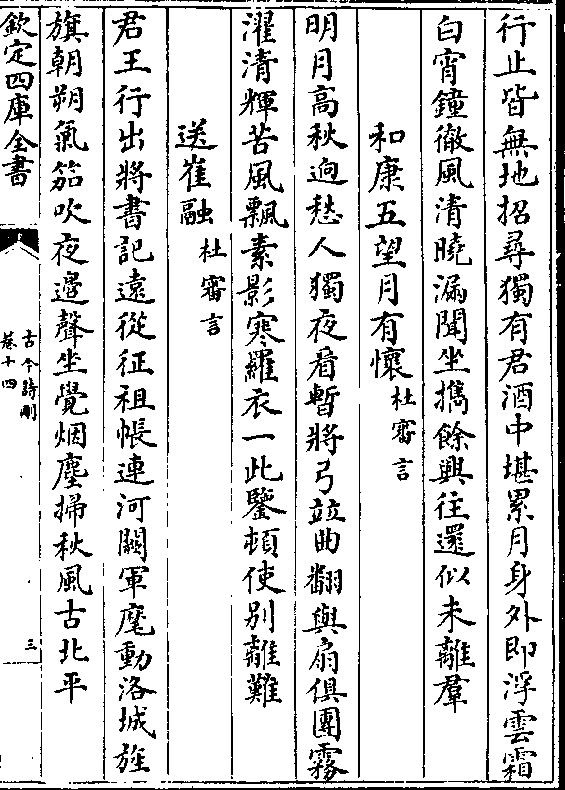 行止皆無地招尋獨有君酒中堪累月身外即浮雲霜
白宵鐘徹風清曉漏聞坐擕餘興往還似未離羣
和康五望月有懷杜審言
明月高秋逈愁人獨夜看暫將弓竝曲翻與扇俱團霧
濯清輝苦風飄素影寒羅衣一此鑒頓使別離難
送崔融杜審言
君王行出將書記遠從征祖帳連河闕軍麾動洛城旌
旗朝朔氣笳吹夜邊聲坐覺烟塵掃秋風古北平
欽定四庫全書
古今詩刪
卷十四
三